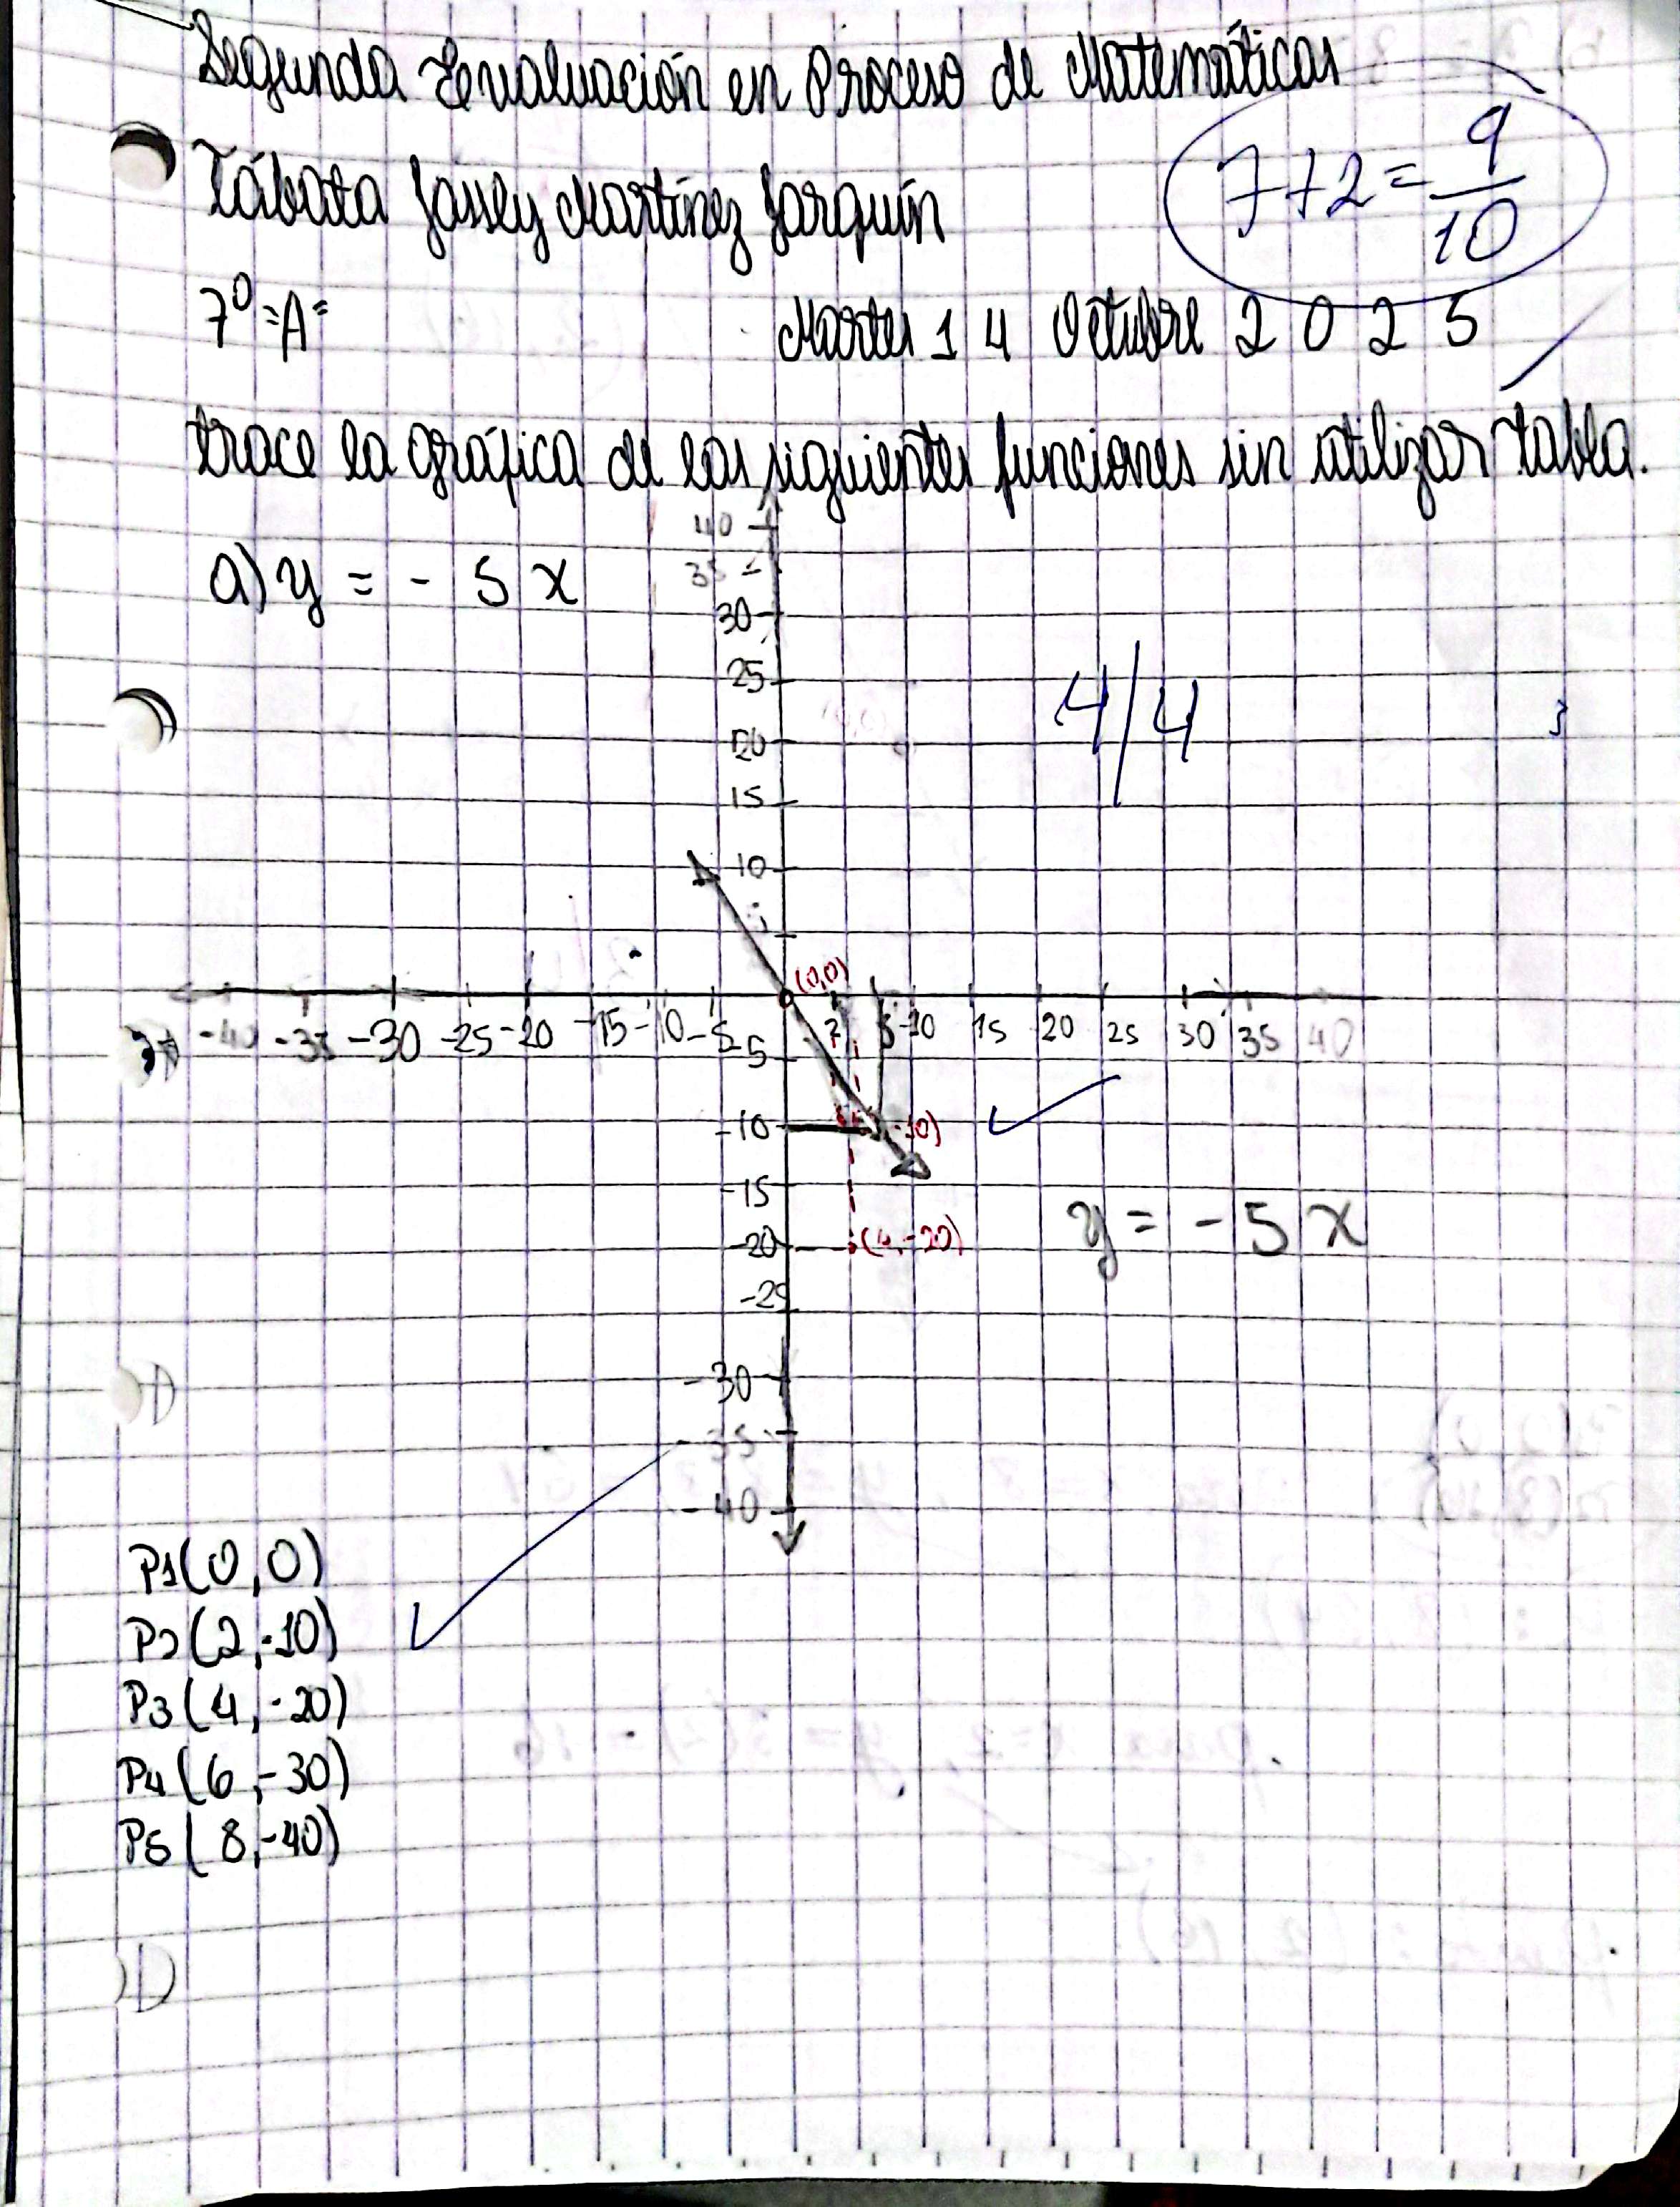 Segunda Evaluación en Proceso de Matemáticas
7+2=9/10
Tábata Jassly Martínez Jarquín
7º "A" Martes 14 Octubre 2025
trace la gráfica de las siguientes funciones sin utilizar tabla.
a) y = -5x
40
35
30
25
4/4
20
15
10
5
(0,0)
-40 -35 -30 -25 -20 -15 -10 -5 2 5 10 15 20 25 30 35 40
-5
-10 -10)
-15
y = -5x
-20 (4,-20)
-25
-30
-35
-40
P1(0,0)
P2(2,-10)
P3(4,-20)
P4(6,-30)
P5(8,-40)